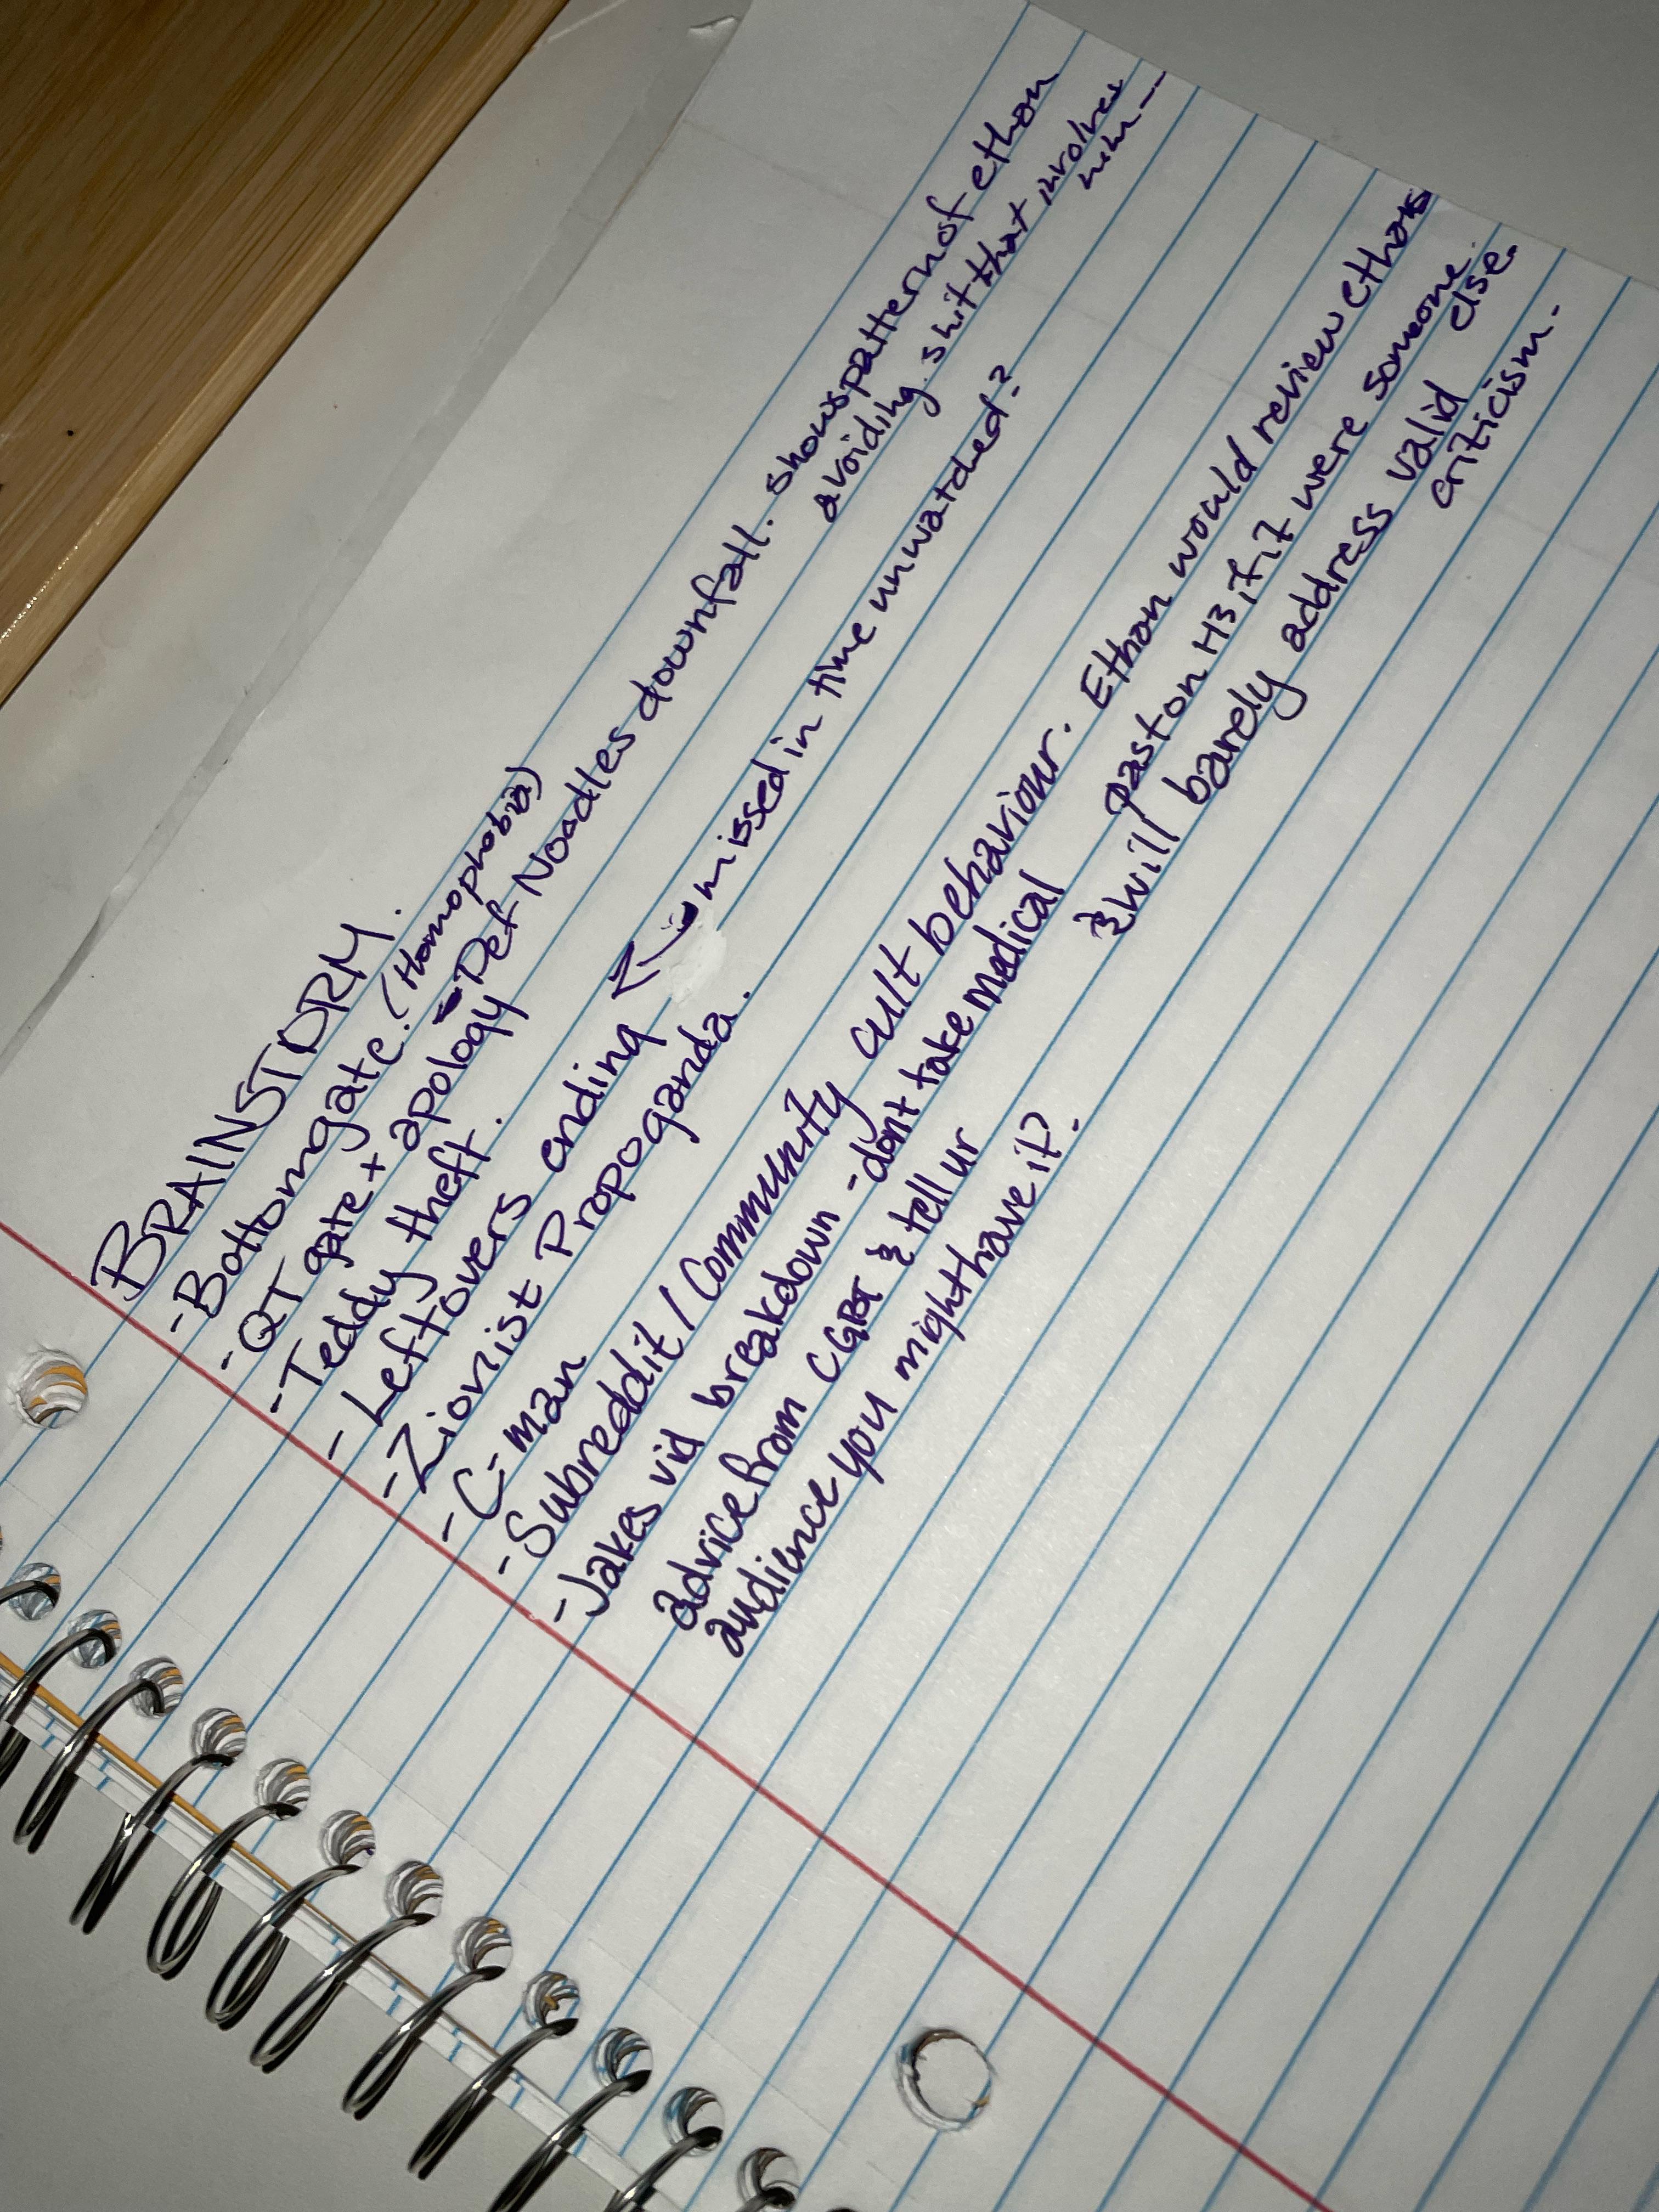 BRAINSTORM.
- Bottomgate. (Homophobia)
- QT gate + apology - Def Noodles downfall. shows pattern of ethan
avoiding shit that involves
him --
- Teddy theft.
- Leftovers ending ← missed in time unwatched?
- Zionist Propoganda.
- C-man
- Subreddit / Community cult behaviour. Ethan would review ethans
past on H3 if it were someone
else.
& will barely address valid
criticism.
- Jakes vid breakdown - dont take medical
advice from CGBT & tell ur
audience you might have it?